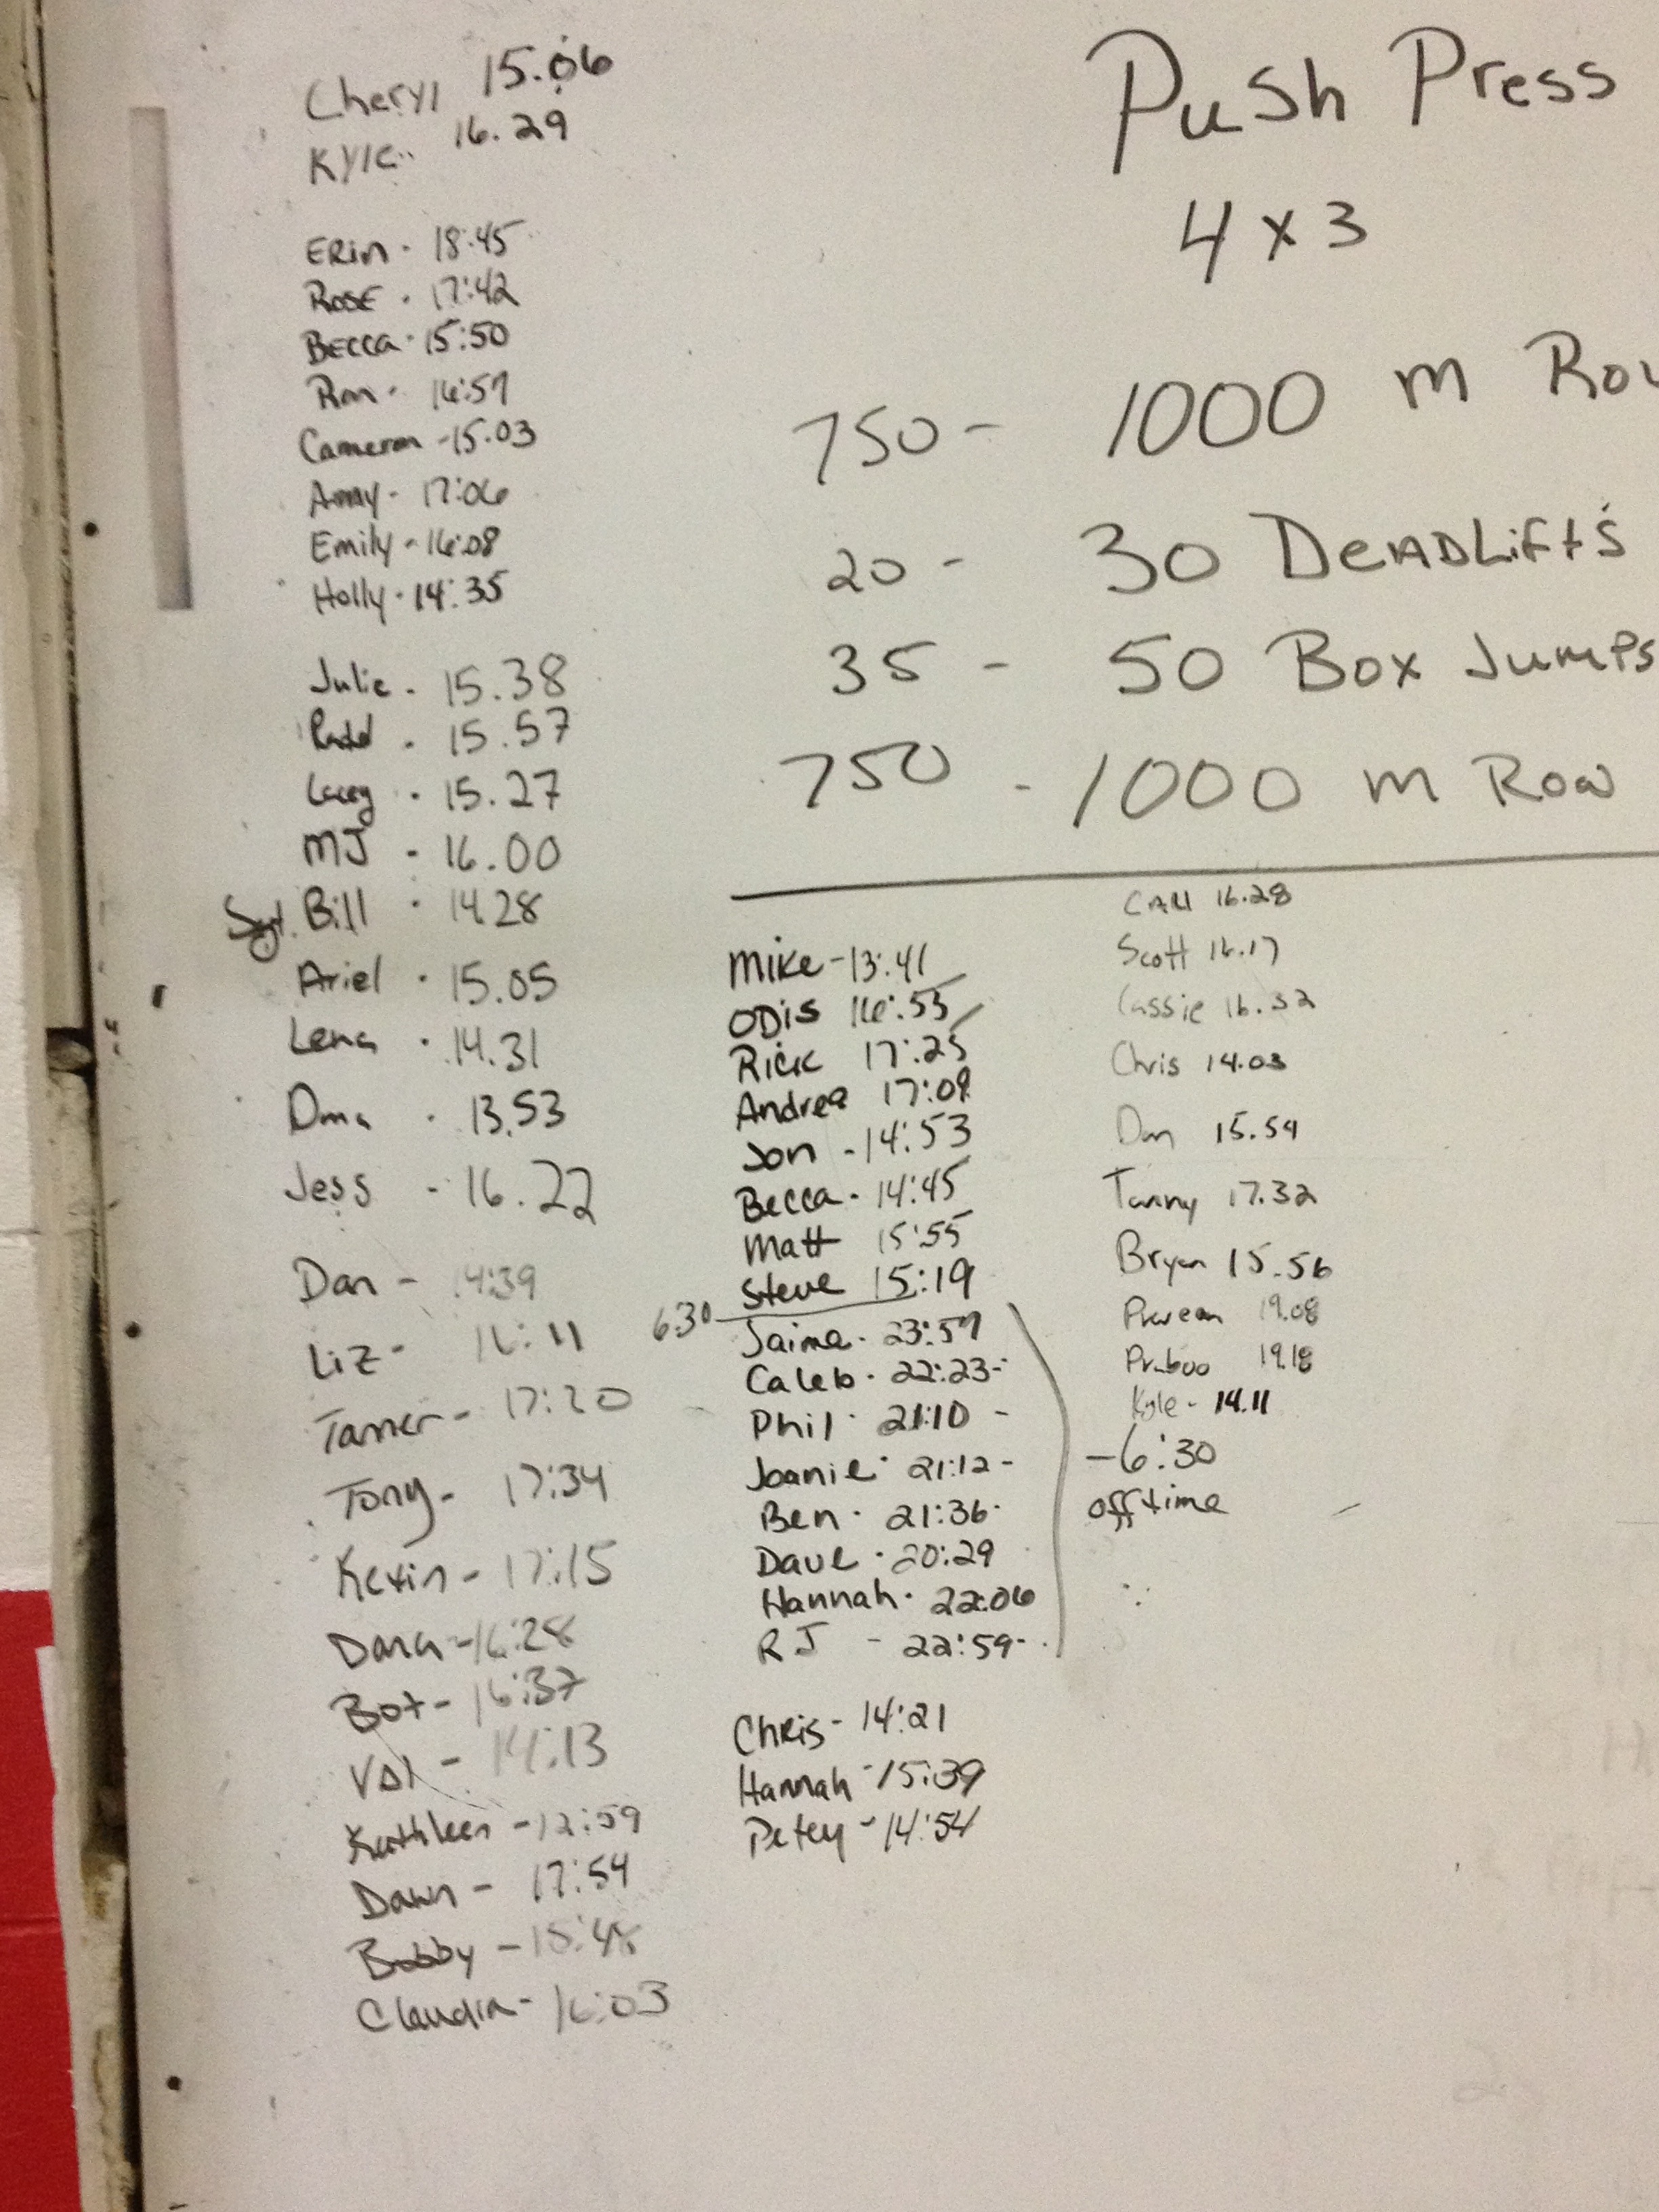 Cheryl 15.06
Kyle 16.29
Erin - 18:45
Rose - 17:42
Becca - 15:50
Ron - 16:57
Cameron - 15.03
Amy - 17:06
Emily - 16:08
Holly - 14:35
Julie - 15.38
15.57
Lacey - 15.27
MJ - 16.00
Sgt. Bill - 14.28
Ariel - 15.05
Lena - 14.31
13.53
Jess - 16.22
Dan - 14:39
Liz - 16:11
Tamer - 17:20
Tony - 17:34
Kevin - 17:15
Dana - 16:28
Bot - 16:37
Val - 14:13
Kathleen - 12:59
Dawn - 17:54
Bobby - 15:48
Claudia - 16:03
Push Press
4 x 3
750 - 1000 m Row
20 - 30 DeadLifts
35 - 50 Box Jumps
750 - 1000 m Row
Mike - 13:41
Odis 16:53
Rick 17:25
Andrea 17:09
Jon - 14:53
Becca - 14:45
Matt 15:55
Steve 15:19
6:30
Jaime - 23:57
Caleb - 22:23 -
Phil - 21:10 -
Joanie - 21:12 -
Ben - 21:36 -
Dave - 20:29
Hannah - 22:06
RJ - 22:59 -
Chris - 14:21
Hannah - 15:39
Petey - 14:54
16.28
Scott 16.17
Cassie 16.32
Chris 14.03
Dan 15.54
Tammy 17.32
Bryan 15.56
19.08
19.18
Kyle - 14.11
-6:30
off time